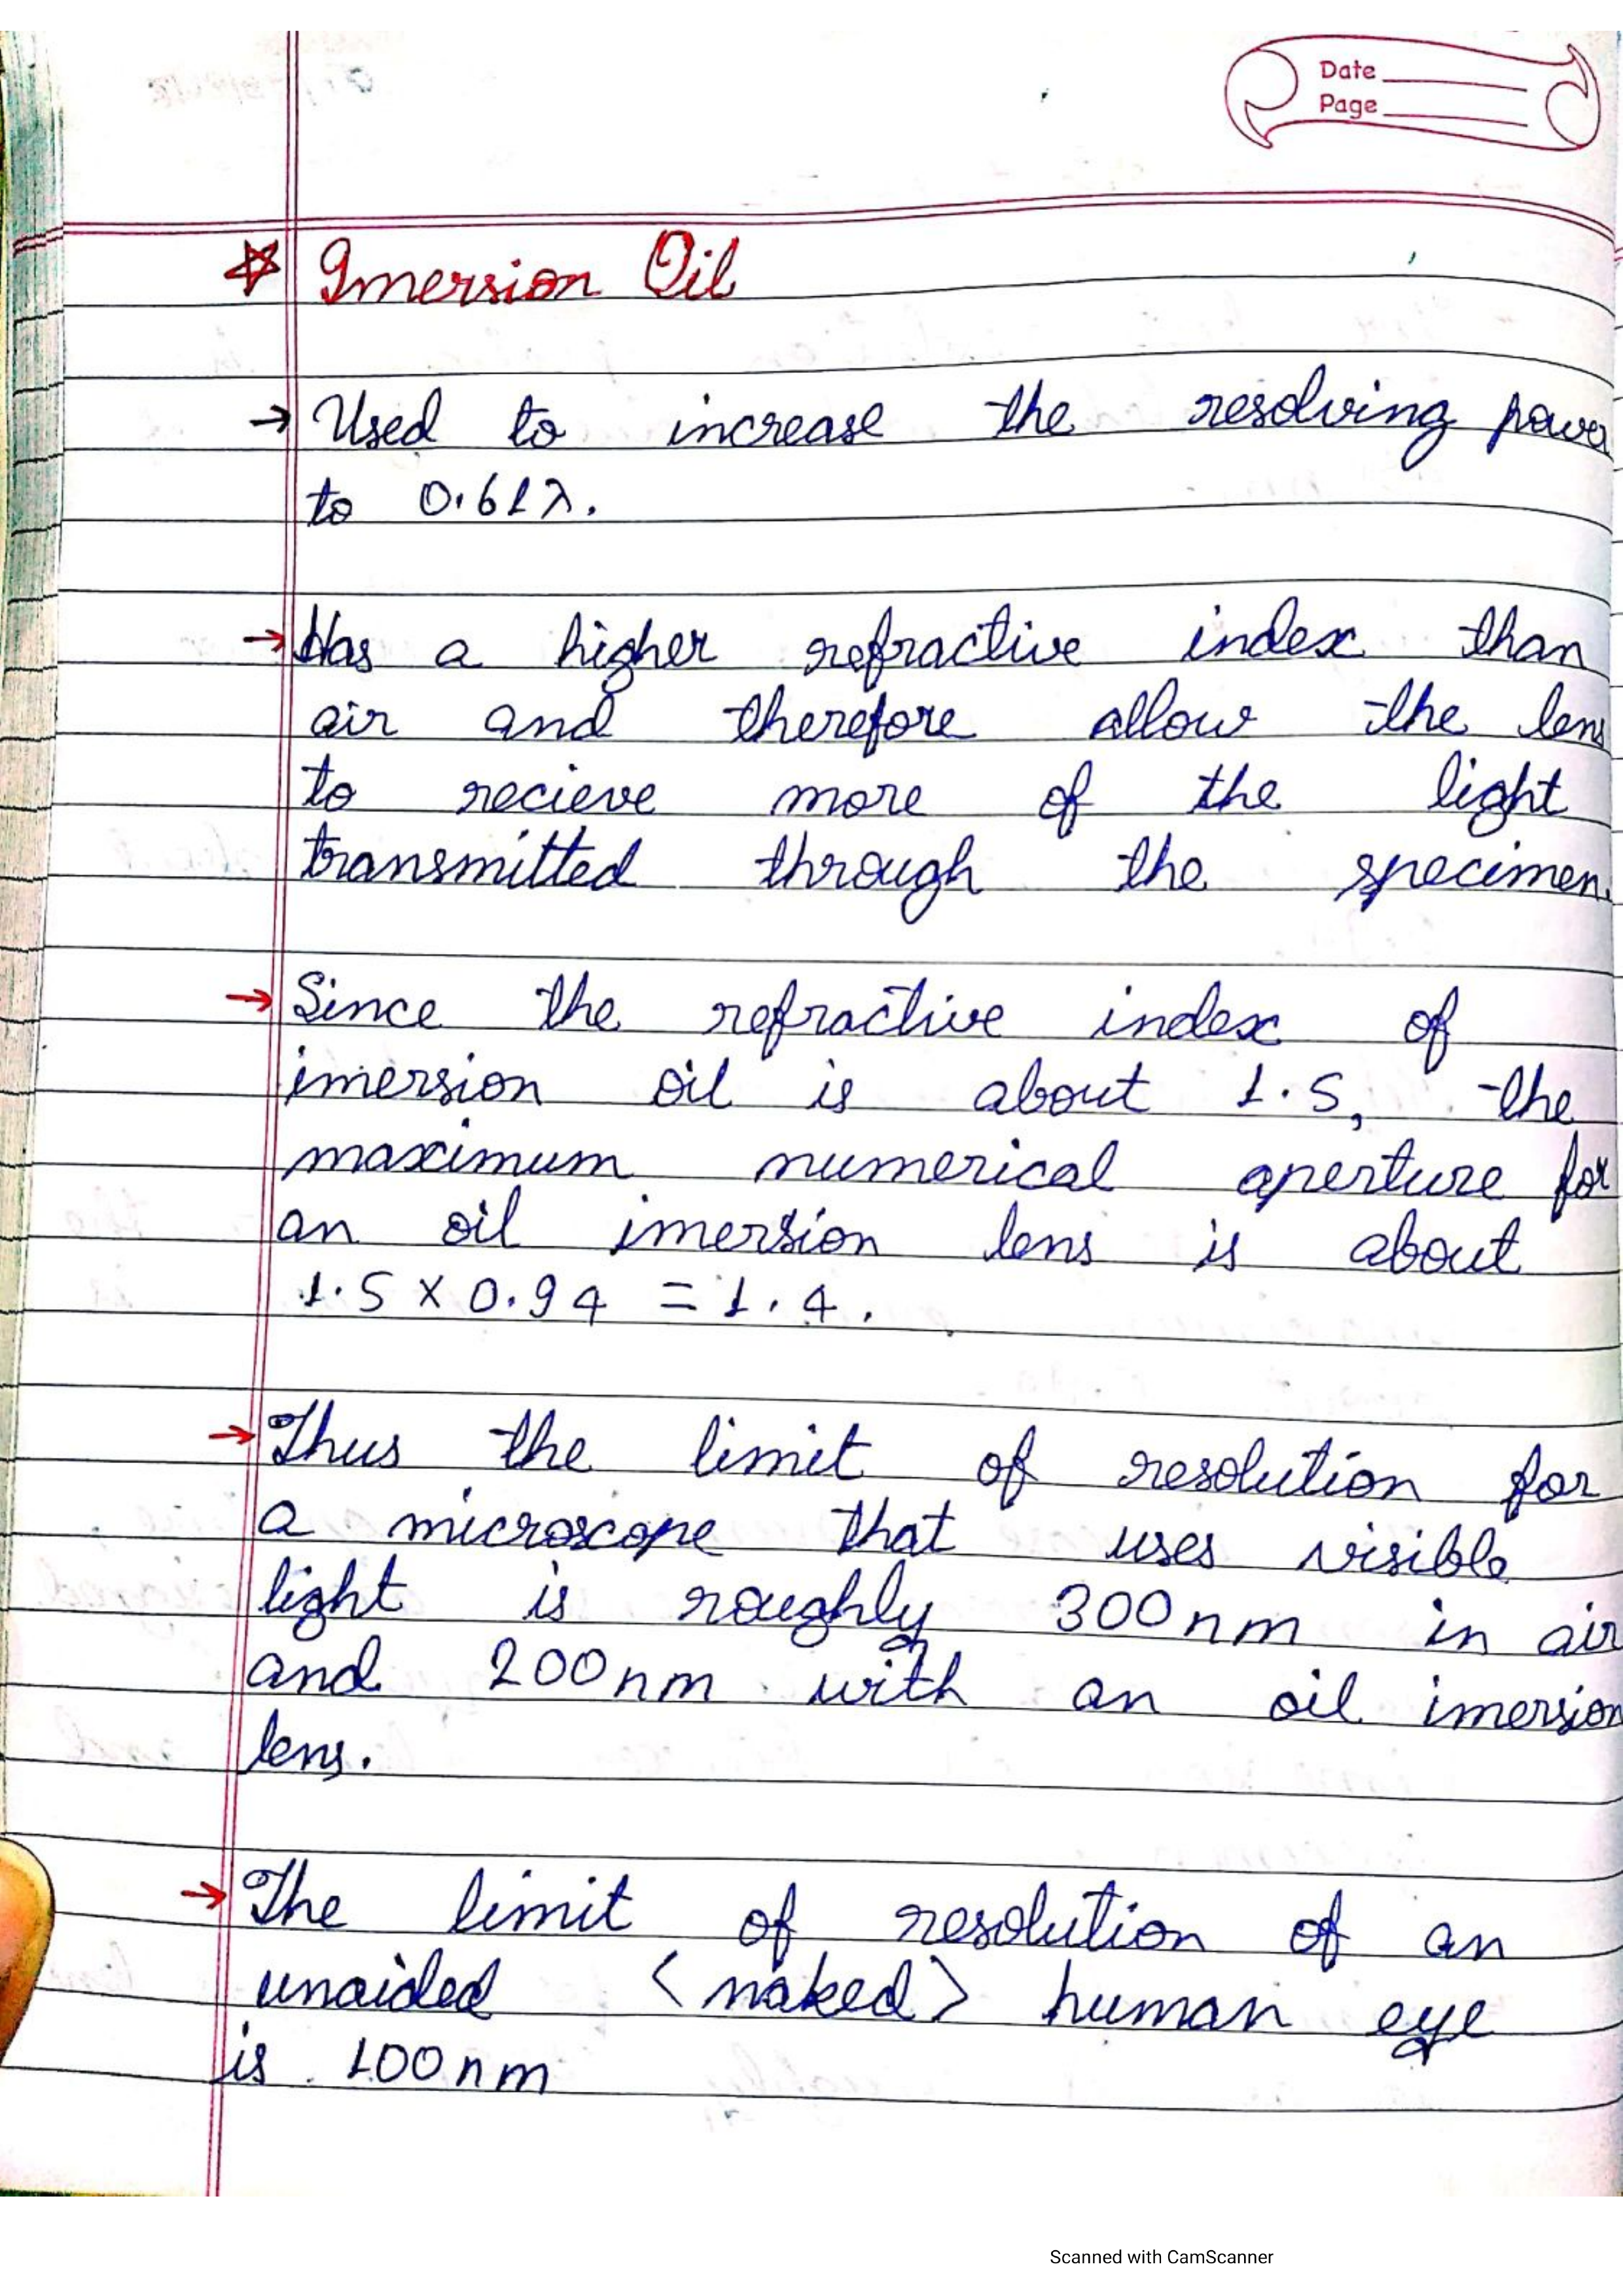 Date
Page
Imersion Oil
→ Used to increase the resolving power
to 0.61λ.
→ Has a higher refractive index than
air and therefore allow the lens
to recieve more of the light
transmitted through the specimen.
→ Since the refractive index of
imersion oil is about 1.5, the
maximum numerical aperture for
an oil imersion lens is about
1.5 × 0.94 = 1.4.
→ Thus the limit of resolution for
a microscope that uses visible
light is roughly 300nm in air
and 200nm with an oil imersion
lens.
→ The limit of resolution of an
unaided <naked> human eye
is 100nm
Scanned with CamScanner